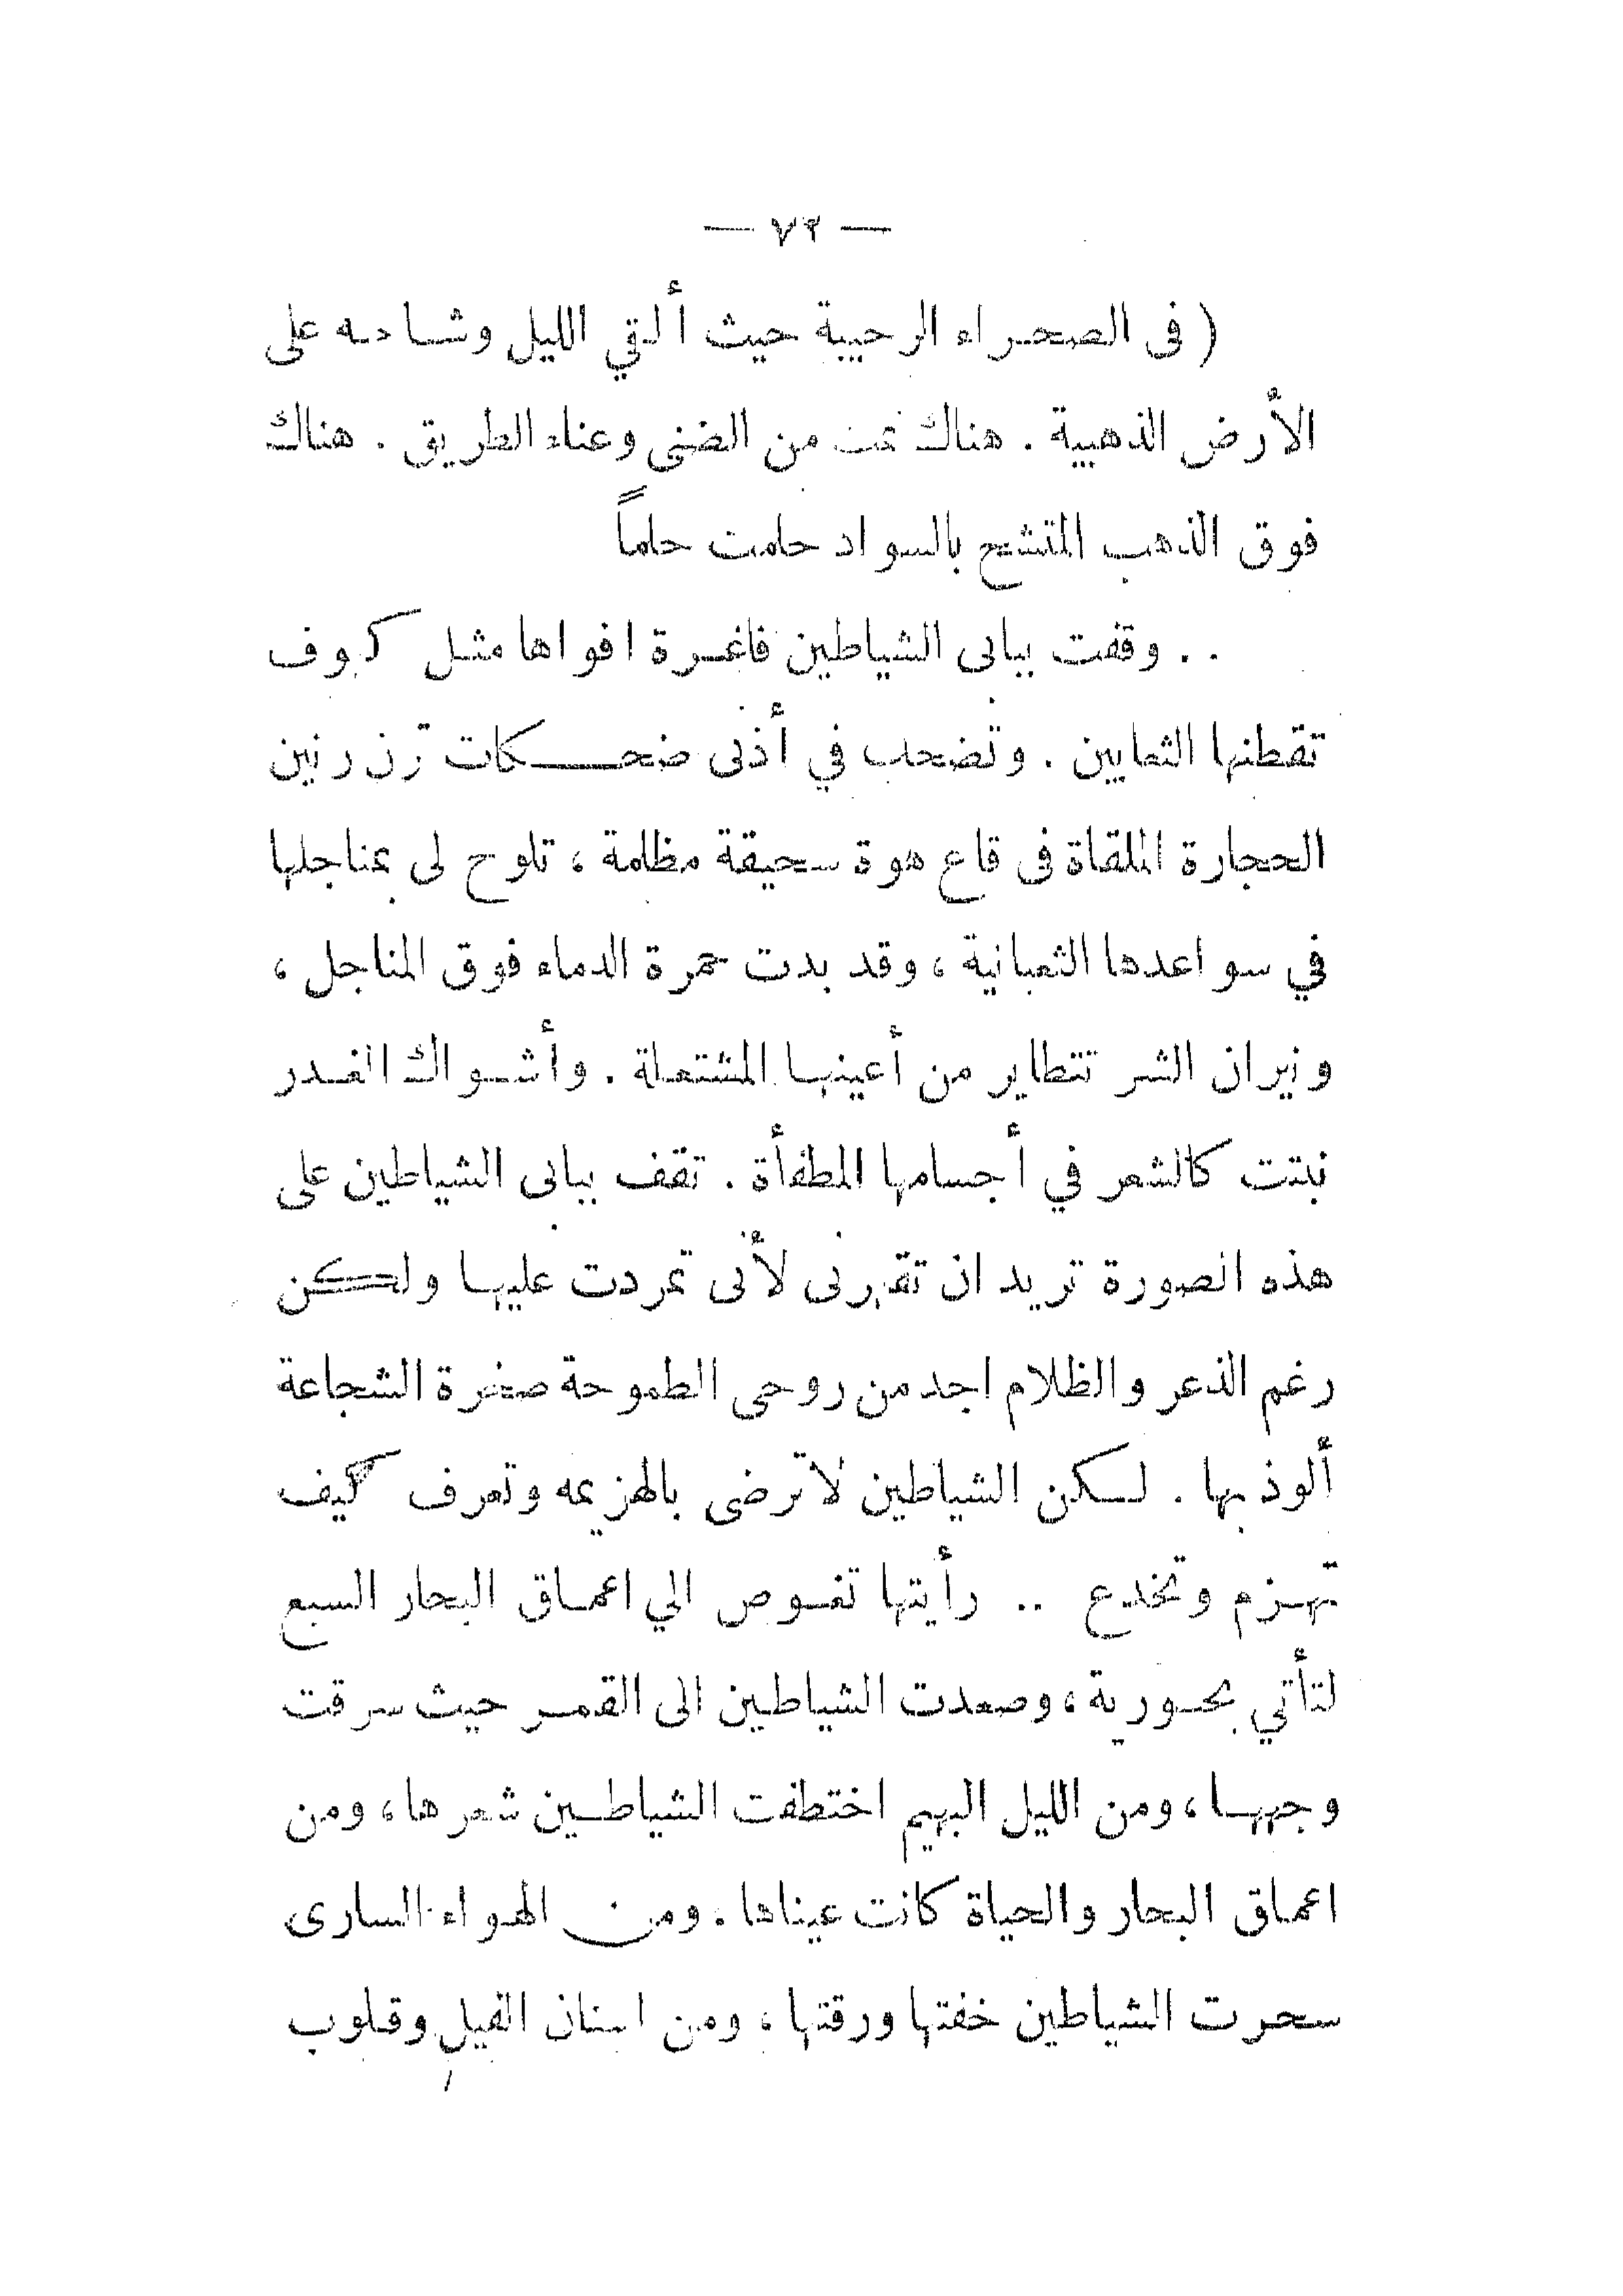 — ٧٢ —
( فى الصحراء الرحيبة حيث ألقي الليل وشاحه على
الأرض الذهبية . هناك نمت من الضنى وعناء الطريق . هناك
فوق الذهب المتشح بالسواد حلمت حلماً
. . وقفت ببابى الشياطين فاغرة افواها مثل كهوف
تقطنها الثعابين . وتضحك في أذنى ضحكات ترن رنين
الحجارة الملقاة فى قاع هوة سحيقة مظلمة ، تلوح لى بمناجلها
في سواعدها الثعبانية ، وقد بدت حمرة الدماء فوق المناجل ،
ونيران الشر تتطاير من أعينها المشتعلة . وأشواك الغدر
نبتت كالشعر في أجسامها المطفأة . تقف ببابى الشياطين على
هذه الصورة تريد ان تقهرنى لأنى تمردت عليها ولكن
رغم الذعر والظلام اجد من روحى الطموحة صخرة الشجاعة
ألوذ بها . لكن الشياطين لا ترضى بالهزيمه وتعرف كيف
تهزم وتخدع .. رأيتها تغوص الي اعماق البحار السبع
لتأتي بحورية ، وصعدت الشياطين الى القمر حيث سرقت
وجهها ، ومن الليل البهيم اختطفت الشياطين شعرها ، ومن
اعماق البحار والحياة كانت عيناها . ومن الهواء السارى
سحرت الشياطين خفتها ورقتها ، ومن اسنان الفيل وقلوب